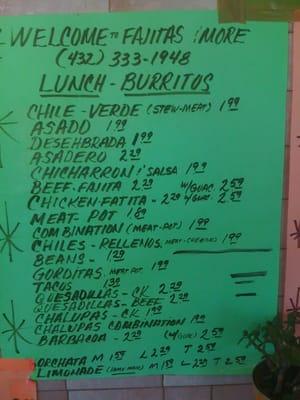 WELCOME TO FAJITAS & MORE
(432) 333-1948
LUNCH-BURRITOS
CHILE-VERDE (STEW-MEAT) 199
ASADO 199
DESEHBRADA 199
ASADERO 229
CHICHARRON & SALSA 199
BEEF-FAJITA 229 W/GUAC. 259
CHICKEN-FATITA-229 W/GUAC. 259
MEAT-POT 189
COMBINATION (MEAT-POT) 199
CHILES-RELLENOS. MEAT-CHEESE) 199
BEANS- 129
GORDITAS. MEAT POT 199
TACOS 139
QUESADILLAS-CK 229
QUESADILLAS-BEEF 229
CHALUPAS-CK 199
CHALUPAS COMBINATION 199
BARBACOA-229 (W/GUAC) 259
ORCHATA M 159 L 229 T 259
LIMONADE M 159 L 229 T 259